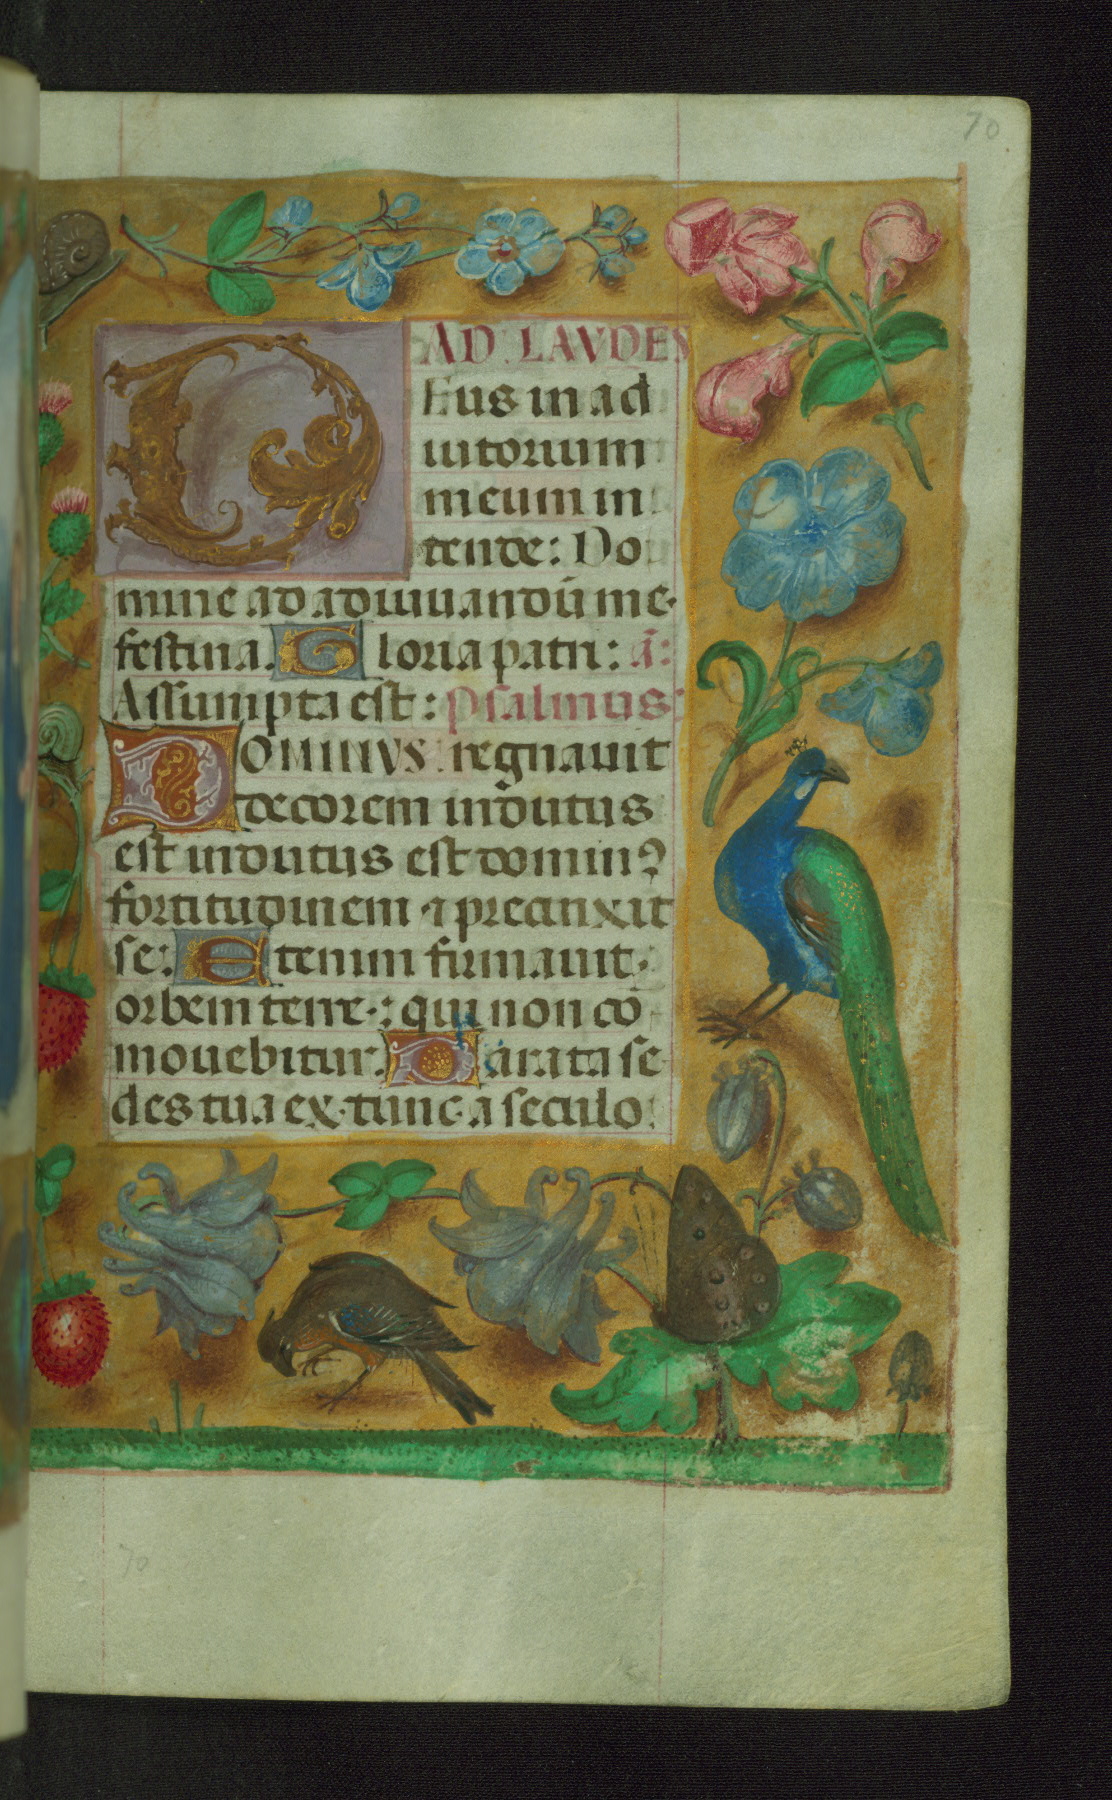 70
AD LAVDES
Deus in ad
iutorium
meum in
tende: Do
mine ad adiuuandū me
festina. Gloria patri: a̅:
Assumpta est: Psalmus:
DOMINVS regnauit
decorem indutus
est indutus est dominꝰ
fortitudinem ⁊ precinxit
se: Etenim firmauit
orbem terre: qui non co
mouebitur: Parata se
des tua ex tunc a seculo:
70